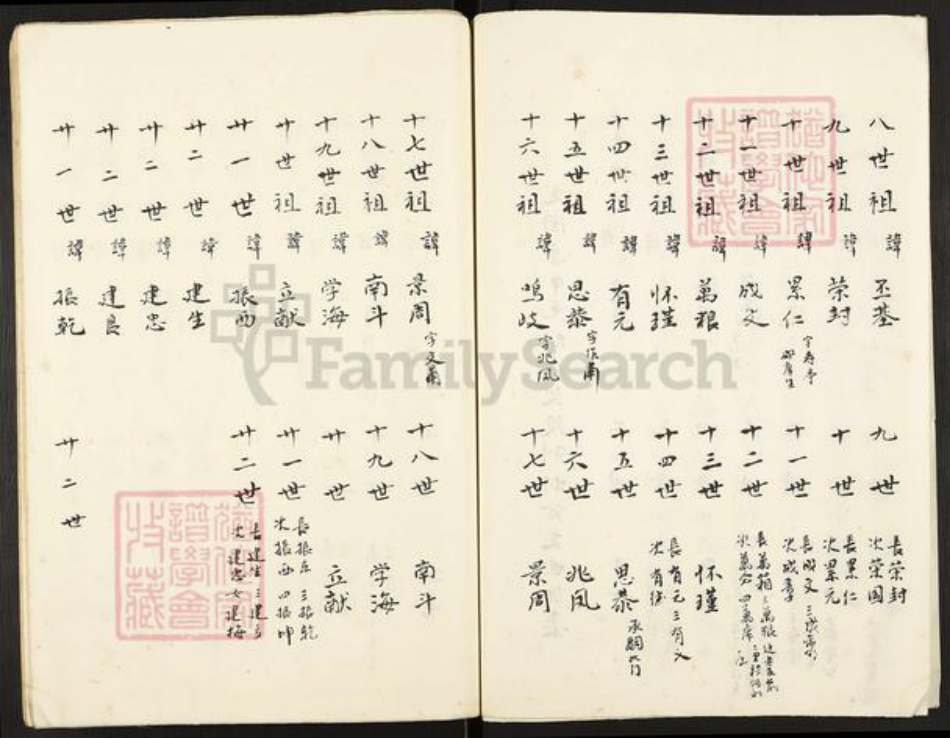 八世祖 諱 丕基
九世 長荣封 次荣国
九世祖 諱 荣封
十世 長累仁 次累元
十世祖 諱 累仁 字寿亭
十一世 長成文 次成章
十一世祖 諱 成文
十二世
十二世祖 諱 萬粮
十三世 怀瑾
十三世祖 諱 怀瑾
十四世 長有元 三有义 次有
十四世祖 諱 有元
十五世 思恭 承嗣
十五世祖 諱 思恭 字
十六世 兆凤
十六世祖 諱 鳴岐 字兆凤
十七世 景周
十七世祖 諱 景周 字文
十八世 南斗
十八世祖 諱 南斗
十九世 学海
十九世祖 諱 学海
廿世 立献
廿世祖 諱 立献
廿一世 長振东 三振乾 次振西 四振坤
廿一世 諱 振西
廿二世 長建生 三建良 次建忠 女建梅
廿二世 諱 建生
廿二世 諱 建忠
廿二世 諱 建良
廿一世 諱 振乾
廿二世
譜學會收藏
譜學會收藏
FamilySearch